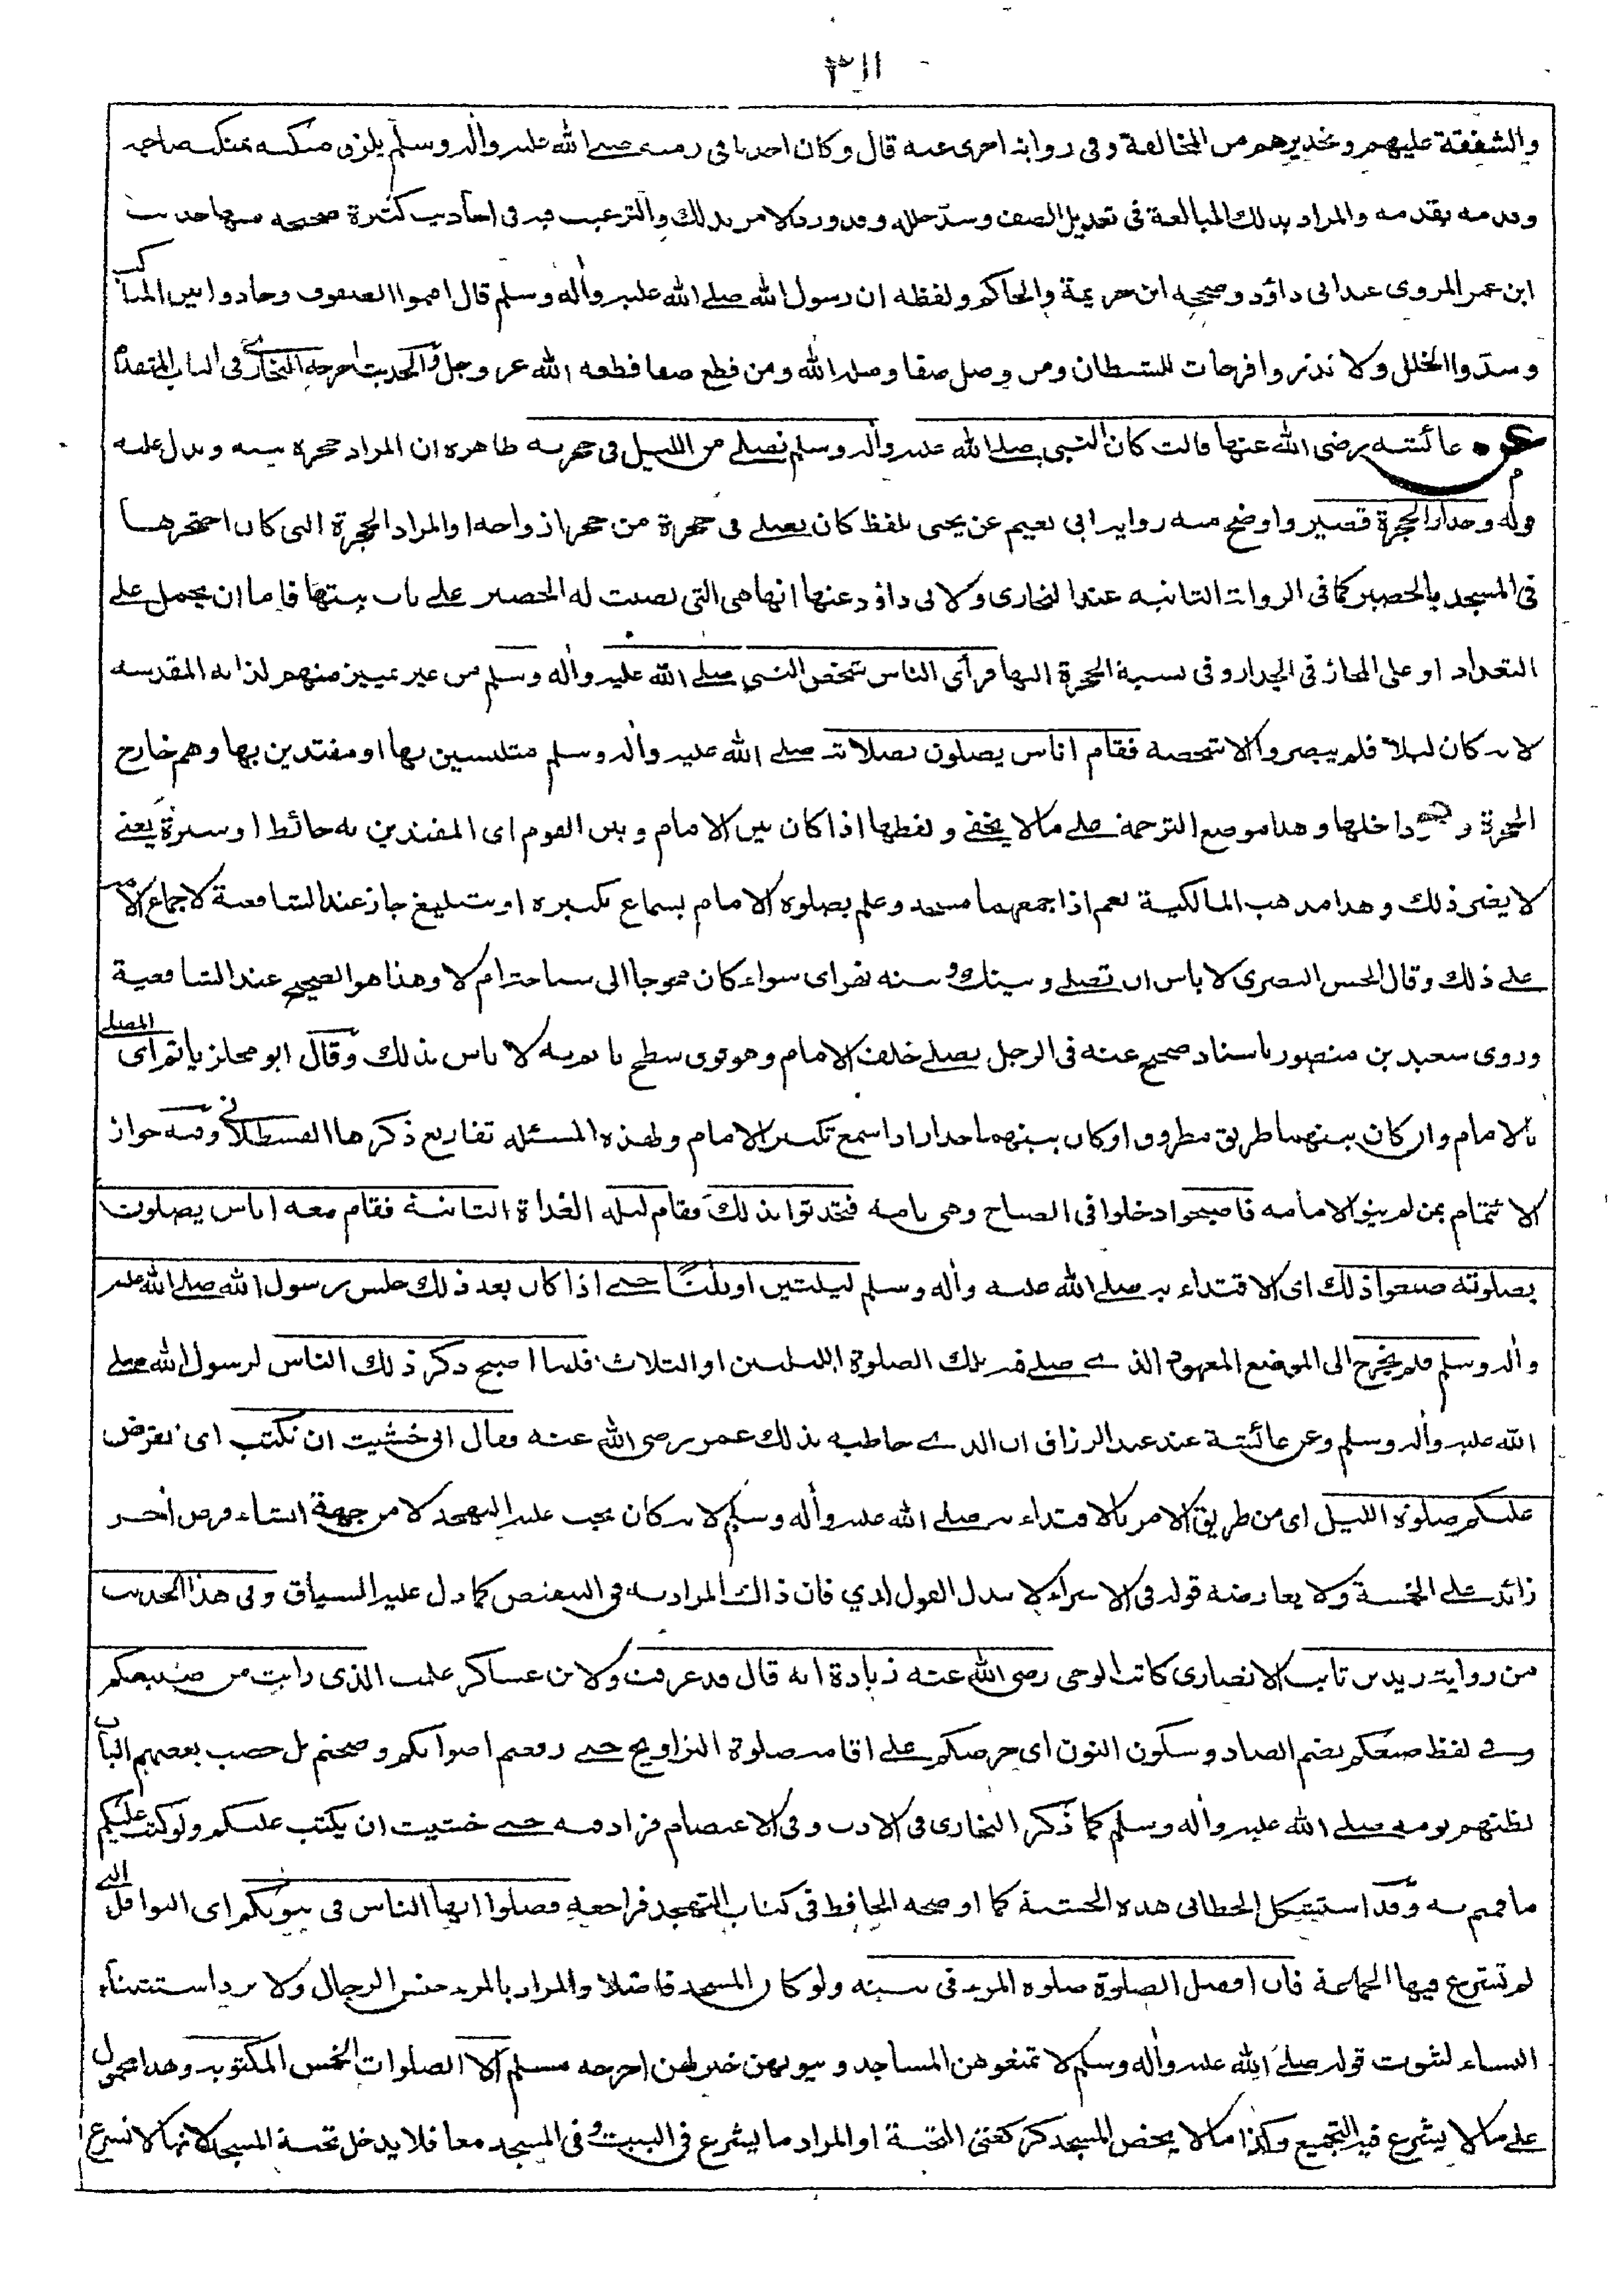 ٣١١
والشفقة عليهم وتحذيرهم من المخالفة وفى رواية اخرى عنه قال وكان احدنا فى زمنه صلے الله عليه واٰله وسلم يلزق منكبه بمنكب صاحبه
وقدمه بقدمه والمراد بذلك المبالغة فى تعديل الصف وسدّ خلله وقد ورد الامر بذلك والترغيب فيه فى احاديث كثيرة صحيحه منها حديث
ابن عمر المروى عند ابى داؤد وصححه ابن خزيمة والحاكم ولفظه ان رسول الله صلے الله عليه واٰله وسلم قال اقيموا الصفوف وحاذوا بين المناكب
وسدّوا الخلل ولا تذروا فرجات للشيطان ومن وصل صفا وصله الله ومن قطع صفا قطعه الله عز وجل والحديث اخرجه البخارى فى الباب المتقدم
عن عائشه رضى الله عنها قالت كان النبى صلے الله عليه واٰله وسلم يصلے من الليل فى حجرته ظاهره ان المراد حجرة بيته ويدل عليه
قوله وجدار الحجرة قصير واوضح منه رواية ابى نعيم عن يحيى بلفظ كان يصلے فى حجرة من حجر ازواجه او المراد الحجرة التى كان احتجرها
فى المسجد بالحصير كما فى الرواية الثانيه عند البخارى ولابى داؤد عنها انها هى التى نصبت له الحصير على باب بيتها فاما ان يحمل على
التعداد او على المجاز فى الجدار وفى نسبة الحجرة اليها فرأى الناس شخص النبى صلے الله عليه واٰله وسلم من غير تمييز منهم لذاته المقدسه
لانه كان ليلا فلم يبصروا الا شخصه فقام اناس يصلون بصلاته صلے الله عليه واٰله وسلم متلبسين بها او مقتدين بها وهم خارج
الحجرة وهو داخلها وهذا موضع الترجمة على ما لا يخفى ولفظها اذا كان بين الامام وبين القوم اى المقتدين به حائط او سترة يعنى
لا يضر ذلك وهذا مذهب المالكية نعم اذا جمعهما مسجد وعلم بصلوة الامام بسماع تكبيره او بتبليغ جاز عند الشافعية لاجماع الامة
على ذلك وقال الحسن البصرى لا باس ان تصلے وبينك وبينه نهر اى سواء كان محوجا الى سباحة ام لا وهذا هو الصحيح عند الشافعية
وروى سعيد بن منصور باسناد صحيح عنه فى الرجل يصلے خلف الامام وهو فوق سطح ياتم به لا باس بذلك وقال ابو مجلز ياتم اى المصلے
بالامام وان كان بينهما طريق مطروق او كان بينهما جدار اذا سمع تكبير الامام ولهذه المسئله تفاريع ذكرها القسطلانى وفيه جواز
الائتمام بمن لم ينو الامامه فاصبحوا دخلوا فى الصباح وهى تامة فتحدثوا بذلك فقام ليلة الغداة الثانية فقام معه اناس يصلون
بصلوته صنعوا ذلك اى الاقتداء به صلے الله عليه واٰله وسلم ليلتين او ثلثا حتے اذا كان بعد ذلك جلس رسول الله صلے الله عليه
واٰله وسلم فلم يخرج الى الموضع المعهود الذے صلے فيه تلك الصلوة الليلتين او الثلاث فلما اصبح ذكر ذلك الناس لرسول الله صلے
الله عليه واٰله وسلم وعن عائشة عند عبد الرزاق ان الذے خاطبه بذلك عمر رضى الله عنه فقال انى خشيت ان تكتب اى تفرض
عليكم صلوة الليل اى من طريق الامر بالاقتداء به صلے الله عليه واٰله وسلم لانه كان يجب عليه التهجد لا من جهة انشاء فرض اٰخر
زائد على الخمسة ولا يعارضه قوله فى الاسراء لا يبدل القول لدي فان ذاك المراد به فى التنقيص كما دل عليه السياق وفى هذا الحديث
من رواية زيد بن ثابت الانصارى كاتب الوحى رضى الله عنه زيادة انه قال قد عرفت ولابن عساكر علمت الذى رايت من صنيعكم
وفے لفظ صنعكم بضم الصاد وسكون النون اى حرصكم على اقامة صلوة التراويح حتے رفعتم اصواتكم وصحتم بل حصب بعضهم الباب
لظنهم نومه صلے الله عليه واٰله وسلم كما ذكر البخارى فى الادب وفى الاعتصام فزاد فيه حتے خشيت ان يكتب عليكم ولو كتب عليكم
ما قمتم به وقد استشكل الخطابى هذه الخشية كما اوضحه الحافظ فى كتاب التهجد فراجعه فصلوا ايها الناس فى بيوتكم اى النوافل التے
لم تشرع فيها الجماعة فان افضل الصلوة صلوة المرء فى بيته ولو كان المسجد فاضلا والمراد بالمرء جنس الرجال ولا يرد استثناء
النساء لثبوت قوله صلے الله عليه واٰله وسلم لا تمنعوهن المساجد وبيوتهن خير لهن اخرجه مسلم الا الصلوات الخمس المكتوبه وهذا محمول
على ما لا يشرع فيه التجميع وكذا ما لا يخص المسجد كركعتى التحية او المراد ما يشرع فى البيت وفى المسجد معا فلا يدخل تحية المسجد لانها لا تشرع